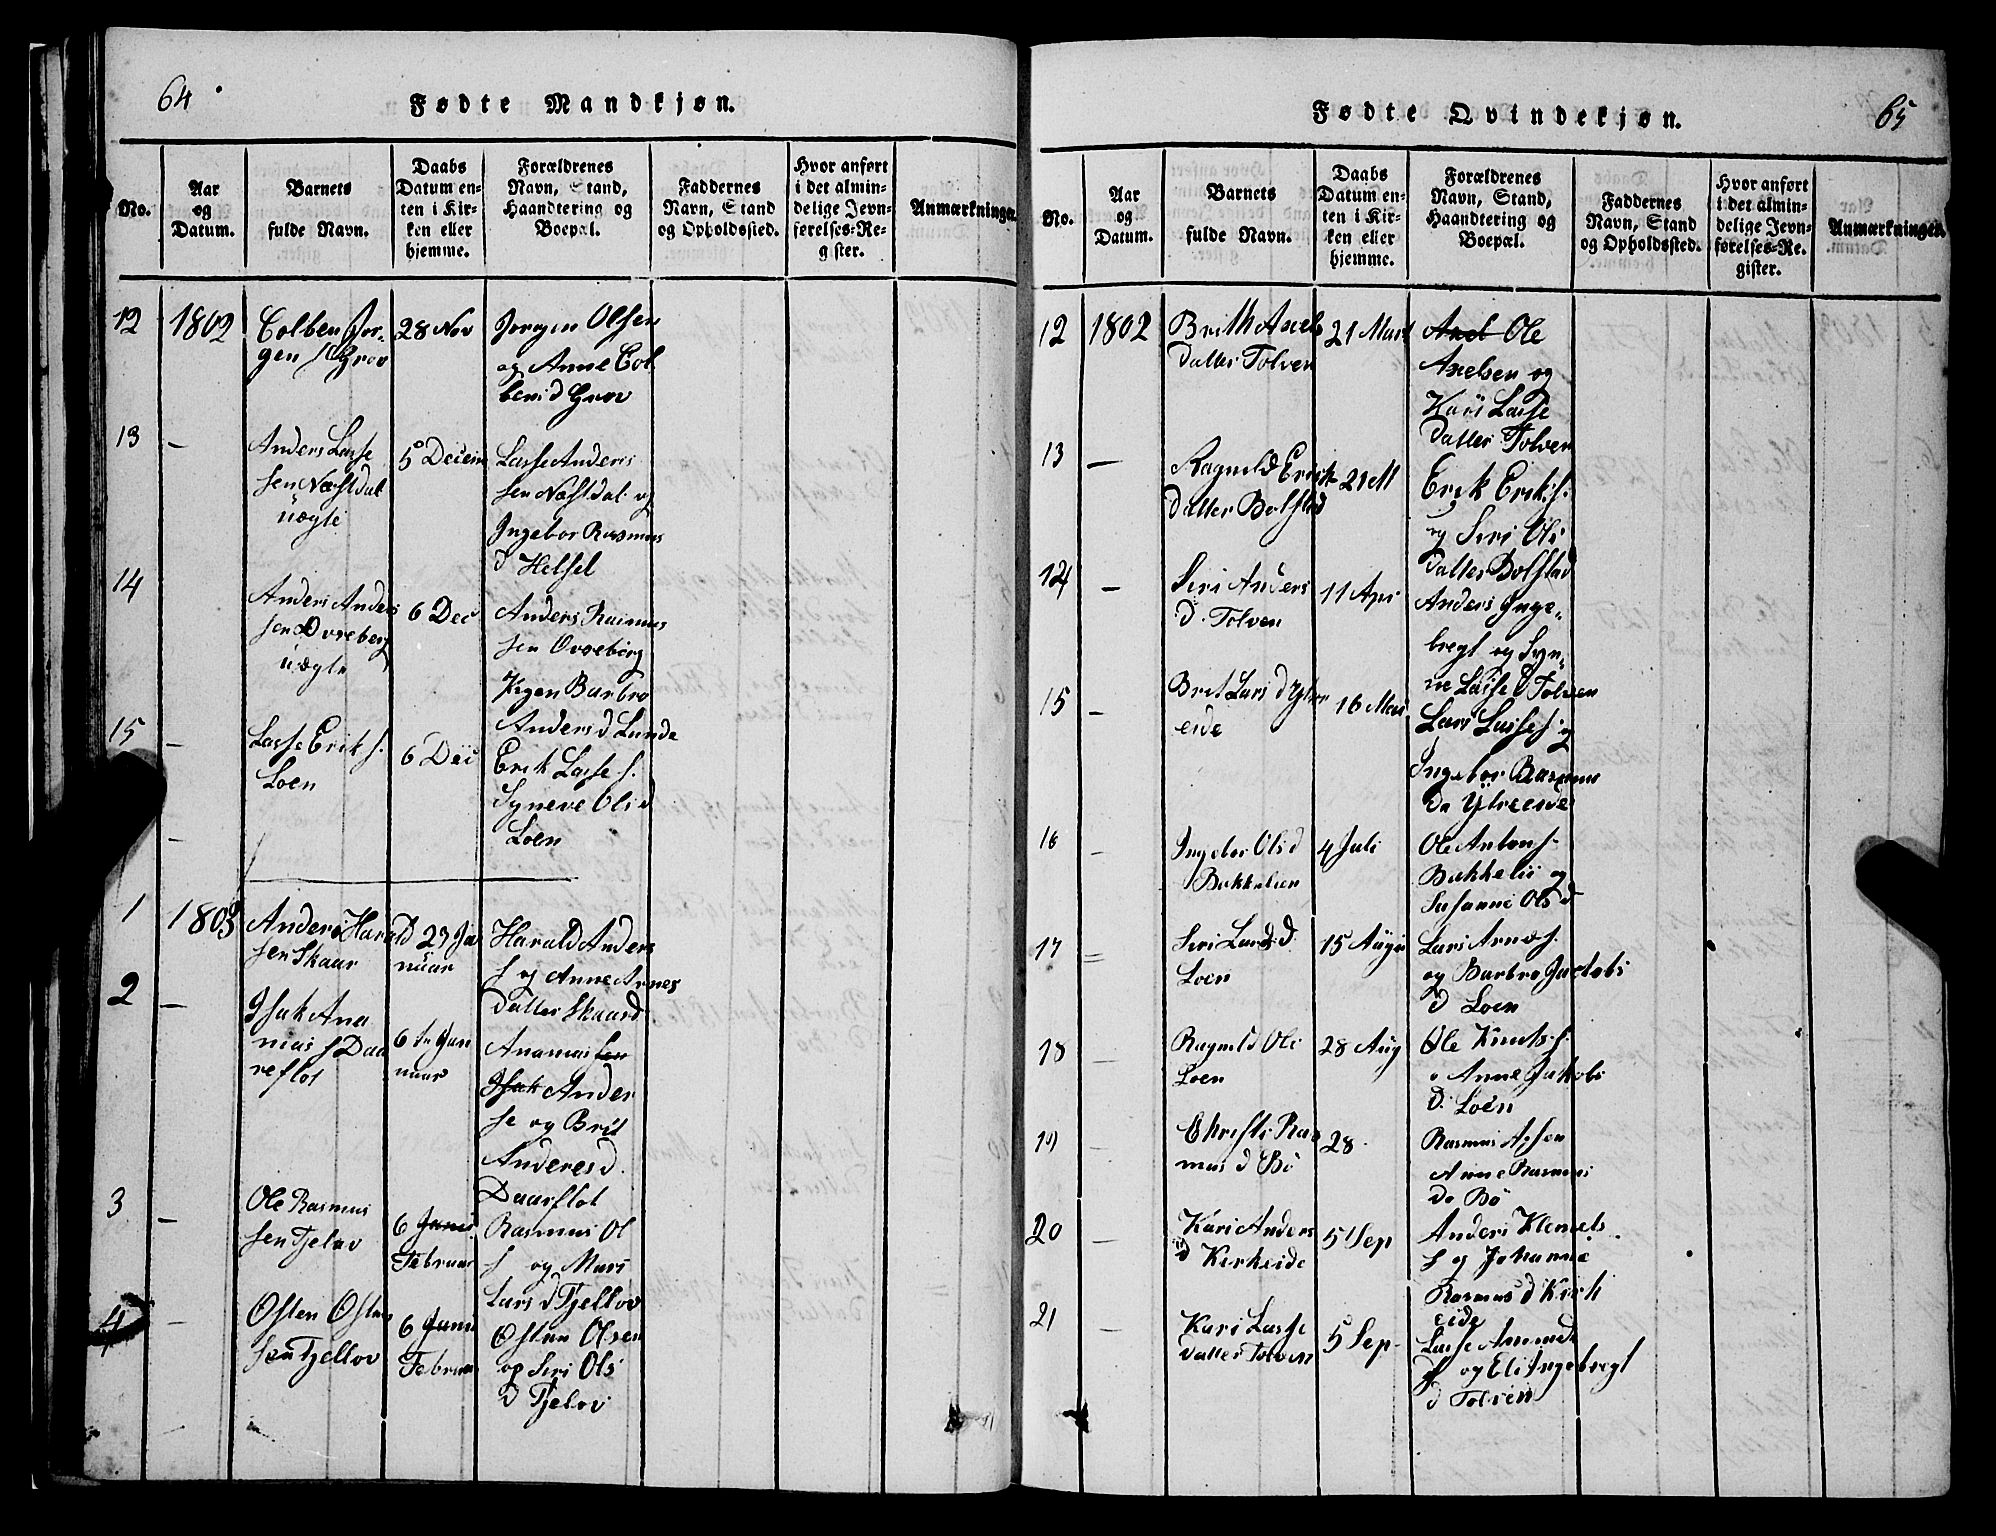 64
Fødte Mandkjøn.
No.
Aar
og
Datum.
Barnets
fulde Navn.
Daabs
Datum en-
ten i Kir-
ken eller
hjemme.
Forældrenes
Navn, Stand,
Haandtering og
Boepæl.
Faddernes
Navn, Stand
og Opholdssted.
Hvor anført
i det almin-
delige Jevn-
førelses-Re-
gister.
Anmærkninger.
12
1802
Colben Jør-
gen s Grov
28 Nov
Jørgen Olsen
og Anne Col
bens d Grov
13
—
Anders Lasse
sen Næstdal
uægte
5 Decem
Lasse Anders
sen Næstdal og
Ingebor Rasmus
d Helsel
14
Anders Anders
sen Ovreberg
uægte
6 Dec
Anders Rasmus
sen Ovreberg
Pigen Barbro
Anders d Lunde
15
—
Lasse Erik s.
Loen
6 Dec
Erik Lasse s.
Syneve Ols d
Loen
—
1
1803
Anders Harald
sen Skaar
23 Ja
nuar
Harald Anders
s og Anne Arnes
datter Skaar
2
—
Isak Ana
nias s Daa
reflot
6 Jan
nuar
Ananias sen
Isak Ander
se og Brit
Anderes d.
Daarflot
3
—
Ole Rasmus
sen Tjelov
6 Janu
Februar
Rasmus Ol
s og Mari
Lars d Tjellov
4
—
Osten Osten
sen Tjellov
6 Janu
Februar
Osten Olsen
og Seri Ols
d Tjelov
65
Fødte Qvindekjøn.
No.
Aar
og
Datum.
Barnets
fulde Navn.
Daabs
Datum en-
ten i Kir-
ken eller
hjemme.
Forældrenes
Navn, Stand,
Haandtering og
Boepæl.
Faddernes
Navn, Stand
og Opholdssted.
Hvor anført
i det almin-
delige Jevn-
førelses-Re-
gister.
Anmærkninger.
12
1802
Brith Axels
datter Tolven
21 Mart
Axel Ole
Axelsen og
Kari Lasse
datter Tolven
13
—
Ragnild Erik
datter Bolstad
21 M
Erik Erik s.
og Seri Ols
datter Bolstad
14
—
Seri Anders
d. Tolven
11 Apr
Anders Inge-
bregt og Syn-
ne Lasse d Tolven
15
—
Brit Lars d Ytre
eide
16 Mai
Lars Lasse s og
Ingebor Rasmus
da Ytreeide
16
—
Ingebor Ols d
Bukkelien
4 Juli
Ole Anton s.
Bukkelii og
Susanni Ols d
17
=
Seri Lars d.
Loen
15 Augu
Lars Arne s.
og Barbro Jackobs
d Loen
18
—
Ragnild Ols
Loen
28 Aug
Ole Knuts s.
Anne Jakobs
d. Loen
19
—
Christi Ras
mus d Bö
28
Rasmus
Anne Rasmus
da Bö
20
—
Kari Anders
d Kirkeide
5 Sep
Anders Klemets
s og Johanne
Rasmus d Kirk
eide
21
—
Kari Lasse
datter Tolven
5 Sep
Lasse Amunds
s og Eli Ingebregt
d Tolven